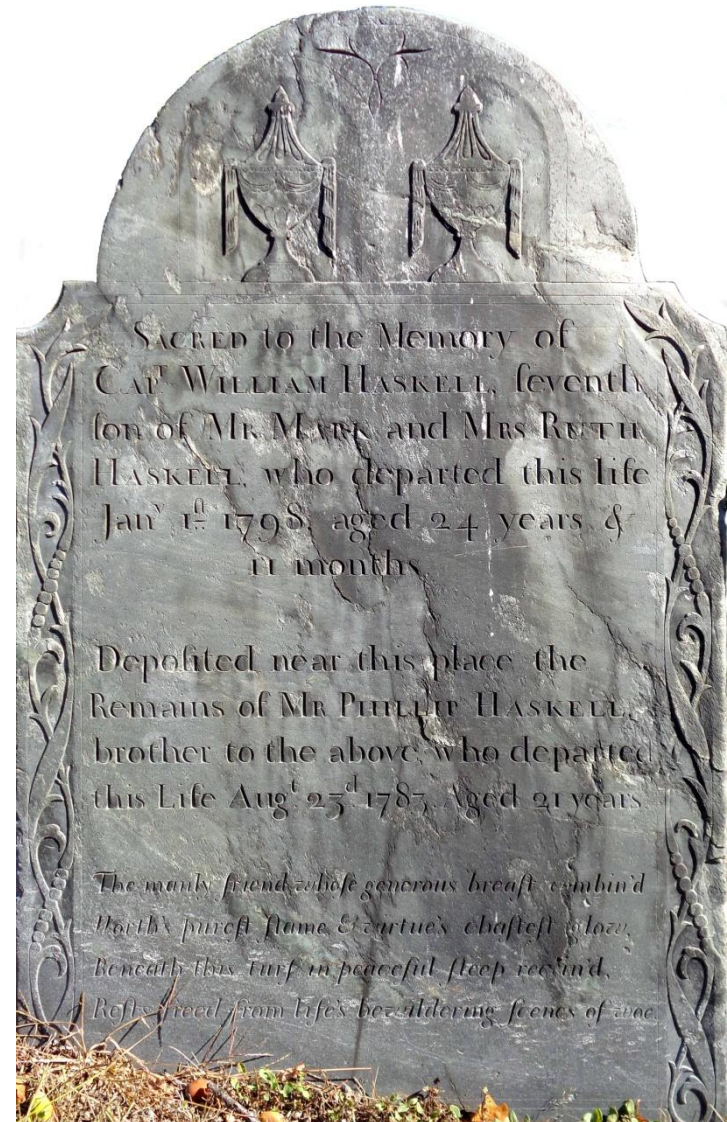 SACRED to the Memory of
CAPᵀ WILLIAM HASKELL, ſeventh
ſon of Mᴿ MARK and Mᴿˢ RUTH
HASKELL, who departed this life
Janʸ 1ſᵗ 1798, aged 24 years &
11 months
Depoſited near this place the
Remains of Mᴿ PHILLIP HASKELL,
brother to the above, who departed
this Life Augᵗ 23ᵈ 1783, Aged 21 years
The manly friend whoſe generous breaſt combin'd
Worth's pureſt flame & virtue's chaſteſt glow,
Beneath this turf in peaceful ſleep reclin'd,
Reſts freed from life's bewildering ſcenes of woe